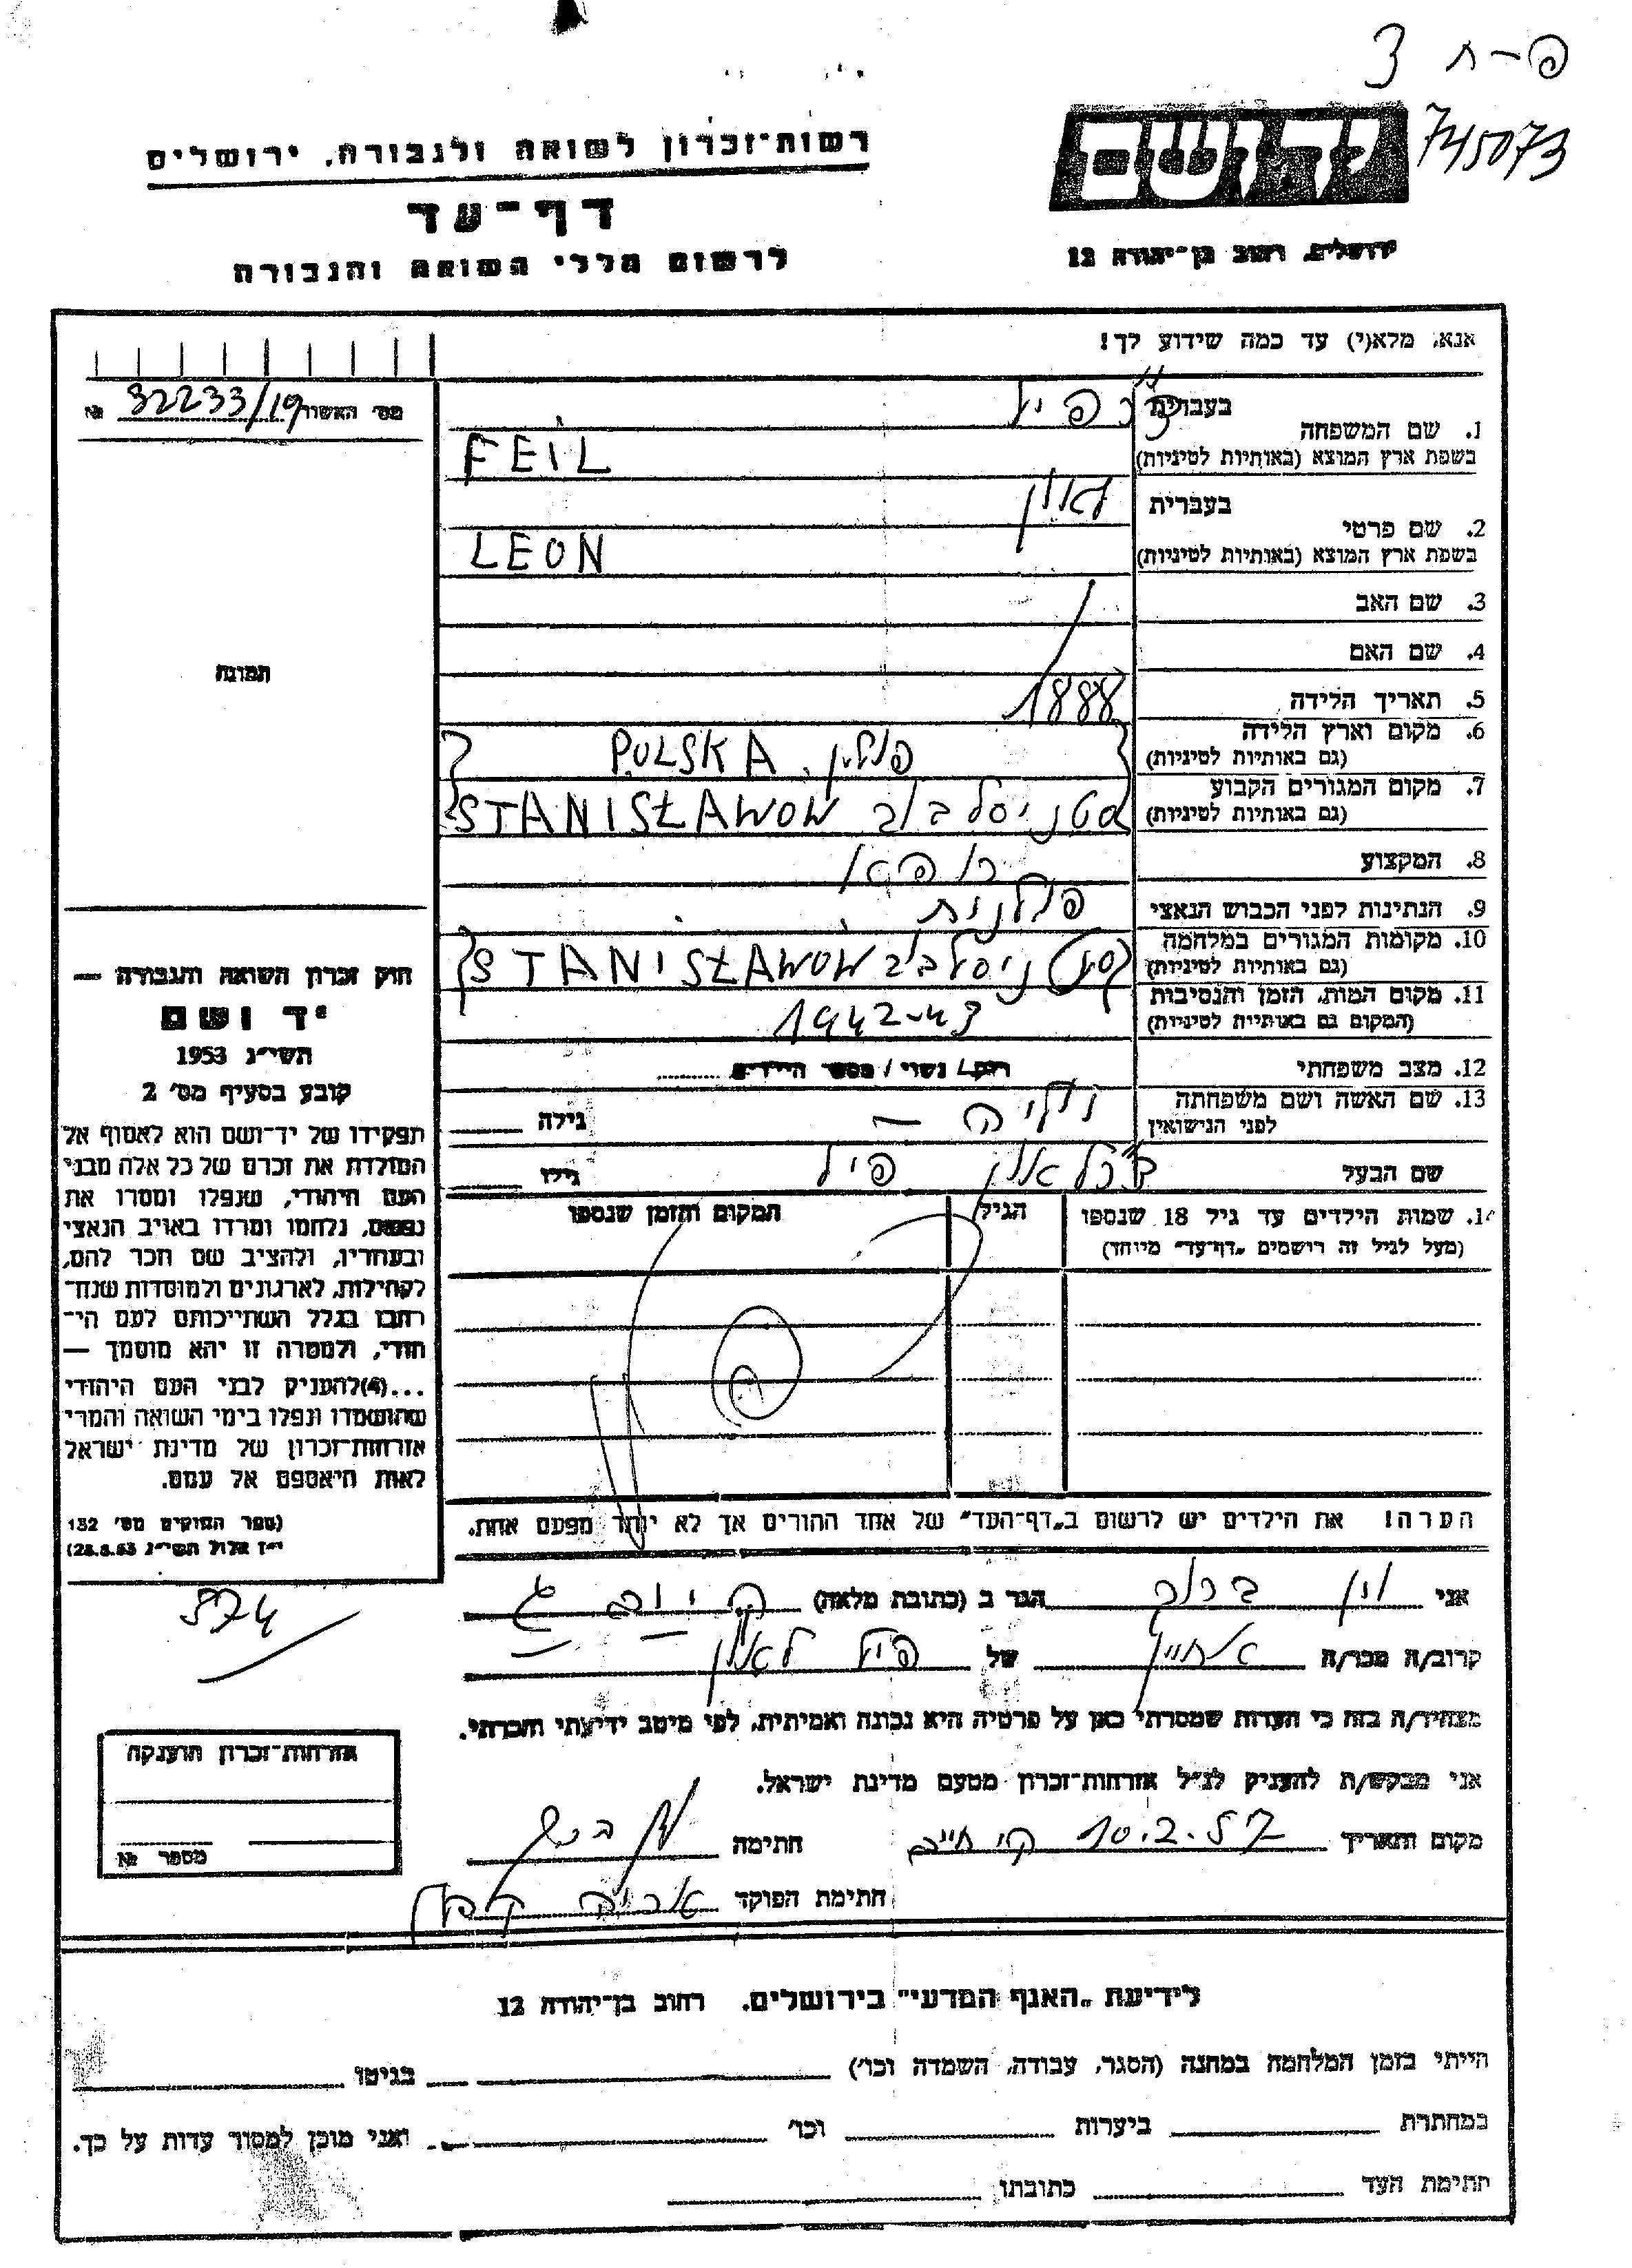 פ-ח 3
745073
יד ושם
ירושלים, רחוב בן-יהודה 12
רשות-זכרון לשואה ולגבורה, ירושלים
דף-עד
לרשום חללי השואה והגבורה
אנא, מלא(י) עד כמה שידוע לך!
מס' האשור 32233/19 №
תמונה
1. שם המשפחה
בעברית פיל
בשפת ארץ המוצא (באותיות לטיניות) FEIL
2. שם פרטי
בעברית לאון
בשפת ארץ המוצא (באותיות לטיניות) LEON
3. שם האב
4. שם האם
5. תאריך הלידה 1888
6. מקום וארץ הלידה (גם באותיות לטיניות) פולין. POLSKA
7. מקום המגורים הקבוע (גם באותיות לטיניות) סטניסלבוב STANISŁAWOW
8. המקצוע רופא
9. הנתינות לפני הכבוש הנאצי פולנית
10. מקומות המגורים במלחמה (גם באותיות לטיניות) סטניסלבוב STANISŁAWOW
11. מקום המות, הזמן והנסיבות (המקום גם באותיות לטיניות) 1942-43
12. מצב משפחתי רוק/ נשוי / מספר הילדים
13. שם האשה ושם משפחתה לפני הנישואין — גילה
שם הבעל לאון פיל גילו
14. שמות הילדים עד גיל 18 שנספו
(מעל לגיל זה רושמים "דף-עד" מיוחד)
הגיל
המקום והזמן שנספו
הערה! את הילדים יש לרשום ב"דף-העד" של אחד ההורים אך לא יותר מפעם אחת.
חוק זכרון השואה והגבורה —
יד ושם
תשי"ג 1953
קובע בסעיף מס' 2
תפקידו של יד-ושם הוא לאסוף אל
המולדת את זכרם של כל אלה מבני
העם היהודי, שנפלו ומסרו את
נפשם, נלחמו ומרדו באויב הנאצי
ובעוזריו, ולהציב שם וזכר להם,
לקהילות, לארגונים ולמוסדות שנח-
רבו בגלל השתייכותם לעם הי-
הודי, ולמטרה זו יהא מוסמך —
...(4)להעניק לבני העם היהודי
שהושמדו ונפלו בימי השואה והמרי
אזרחות-זכרון של מדינת ישראל
לאות היאספם אל עמם.
(ספר החוקים מס' 132
י"ז אלול תשי"ג 28.8.53)
574
אני ברוך הגר ב (כתובת מלאה) ק.
קרוב/ה מכר/ה אחיין של פיל לאון
מצהיר/ה בזה כי העדות שמסרתי כאן על פרטיה היא נכונה ואמיתית, לפי מיטב ידיעתי והכרתי.
אני מבקש/ת להעניק לנ"ל אזרחות-זכרון מטעם מדינת ישראל.
מקום ותאריך 10.2.57 ק. חיים חתימה
חתימת הפוקד אריה
אזרחות-זכרון הוענקה
מספר №
לידיעת "האגף המדעי" בירושלים. רחוב בן-יהודה 12
הייתי בזמן המלחמה במחנה (הסגר, עבודה, השמדה וכו') בגיטו
במחתרת ביערות וכו' ואני מוכן למסור עדות על כך.
חתימת העד כתובתו